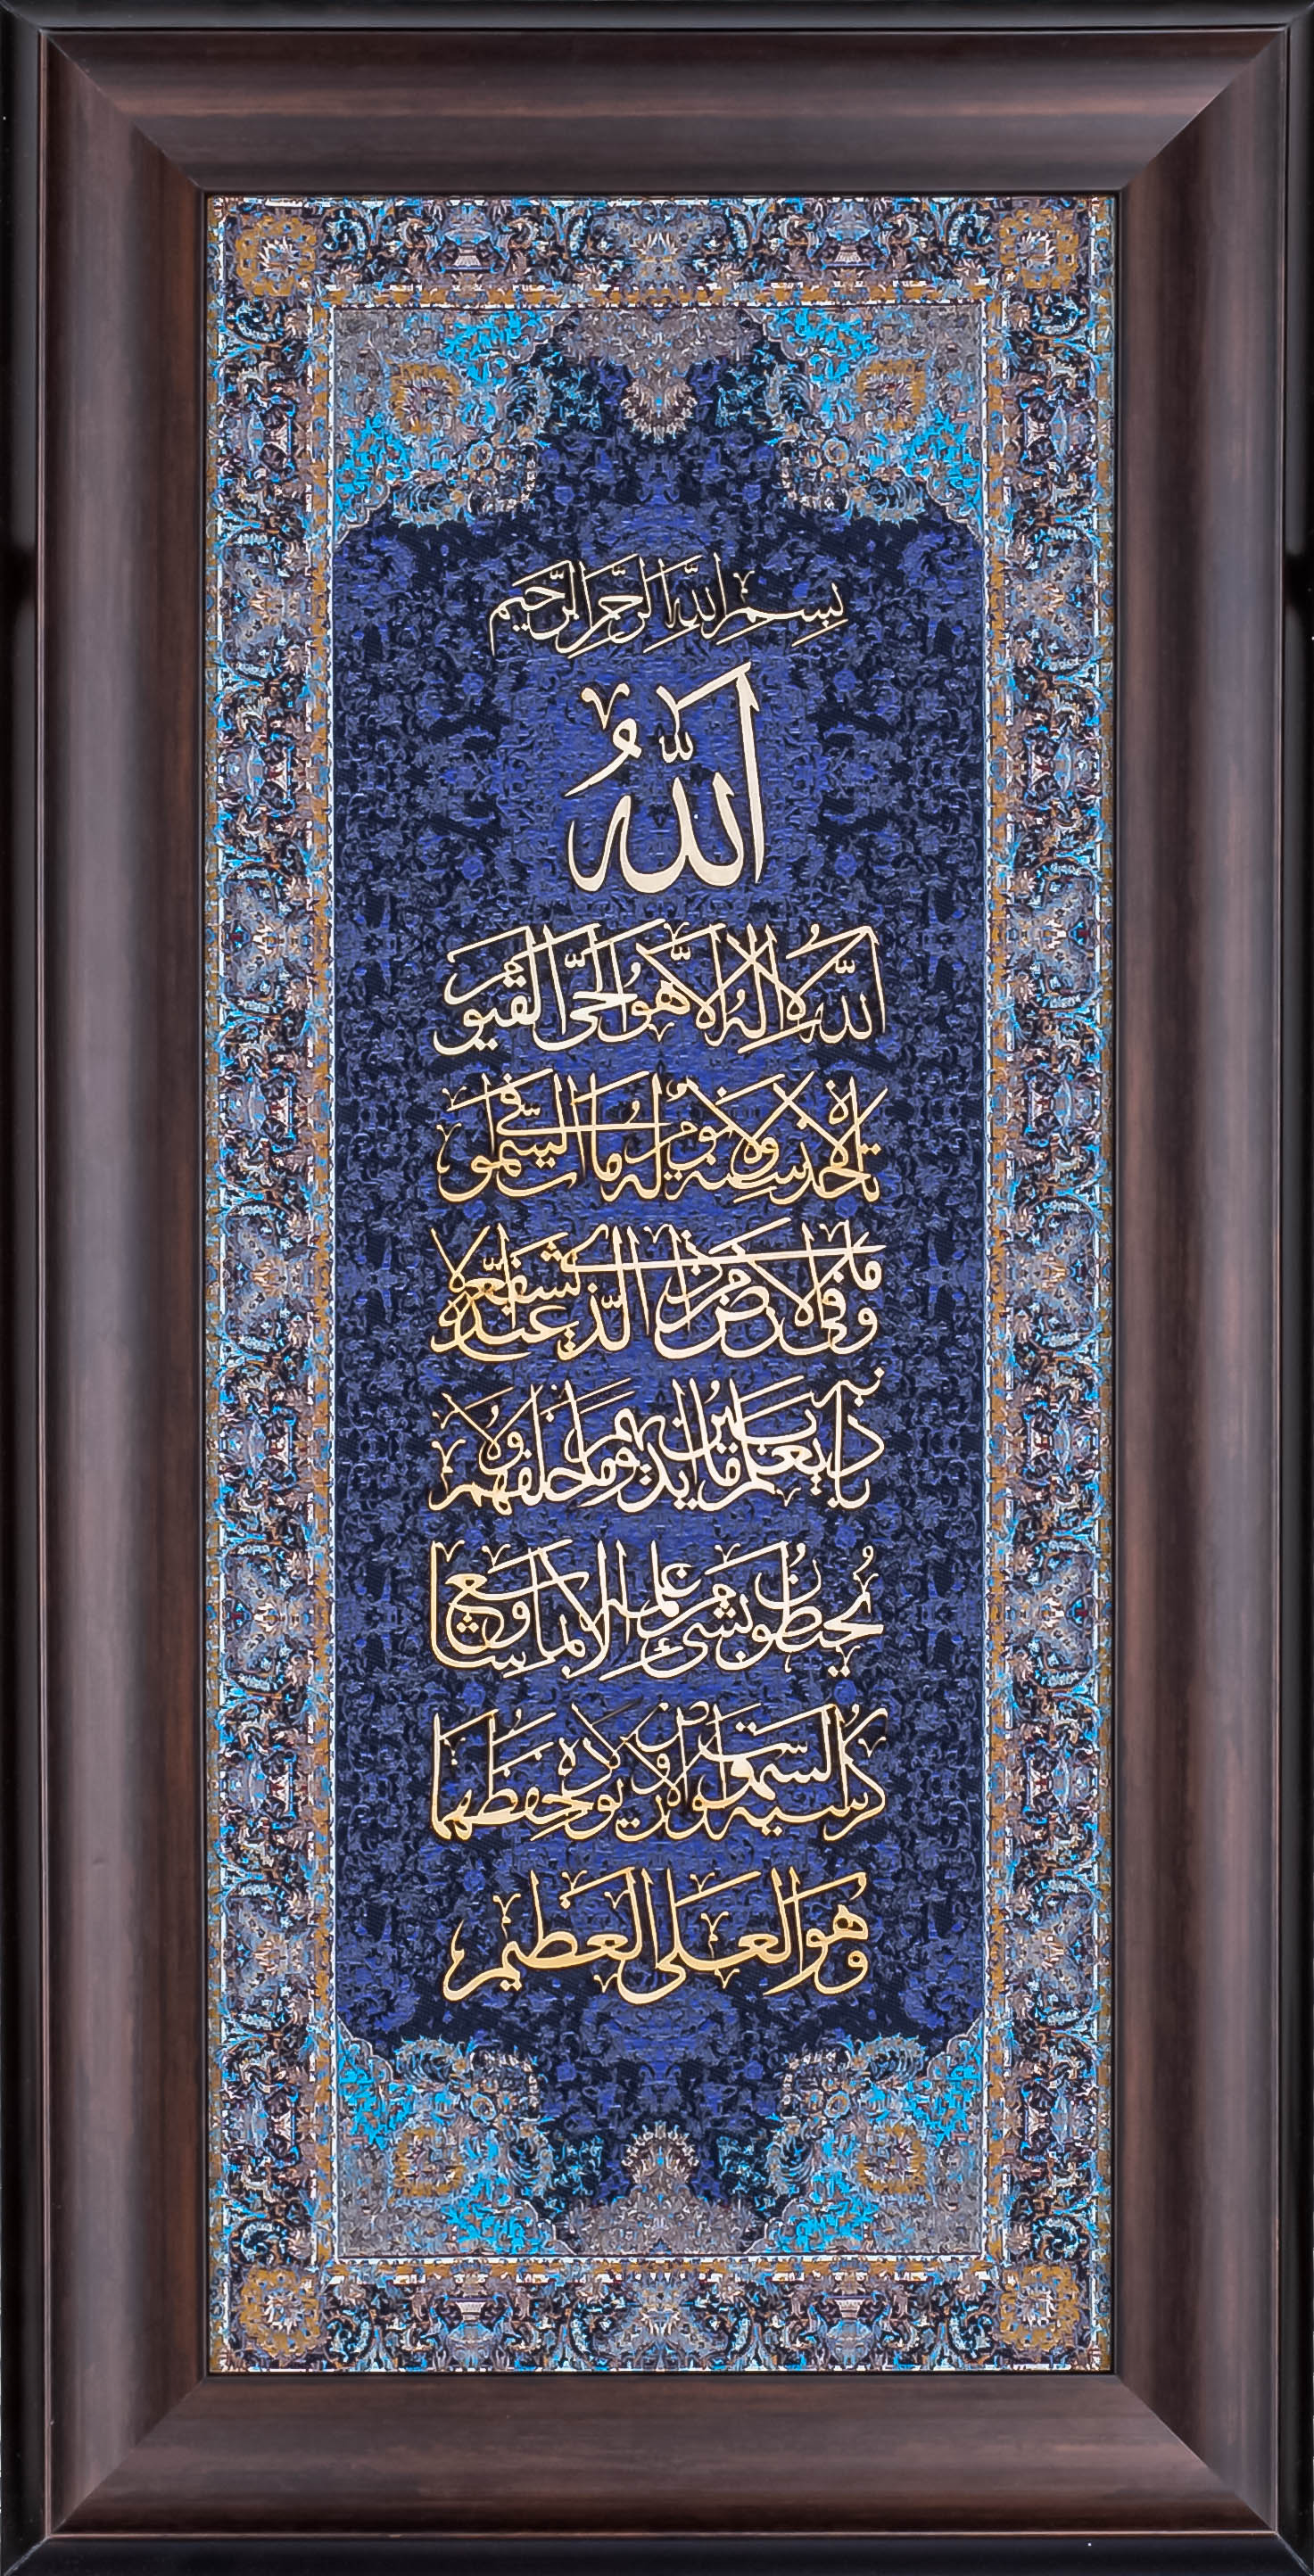 بِسْمِ اللَّهِ الرَّحْمٰنِ الرَّحِيمِ
اللَّهُ
اللَّهُ لا إِلٰهَ إِلَّا هُوَ الحَيُّ القَيُّومُ
لا تَأخُذُهُ سِنَةٌ وَلا نَومٌ لَهُ ما فِي السَّمٰواتِ
وَما فِي الاَرضِ مَن ذَا الَّذِي يَشفَعُ عِندَهُ إِلّا
بِإِذنِهِ يَعلَمُ ما بَينَ أَيدِيهِم وَما خَلفَهُم وَلا
يُحِيطُونَ بِشَيءٍ مِن عِلمِهِ إِلّا بِما شاءَ وَسِعَ
كُرسِيُّهُ السَّمٰواتِ وَالاَرضَ وَلا يَؤُدُهُ حِفظُهُما
وَهُوَ العَلِيُّ العَظِيمُ